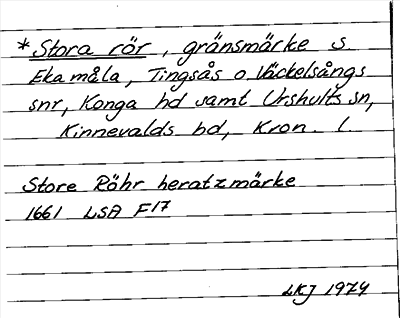 *Stora rör, gränsmärke s.
Ekamåla, Tingsås o. Väckelsångs
snr, Konga hd samt Urshults sn,
Kinnevalds hd, Kron. l.
Store Röhr heratzmärke
1661 LSA F17
LKJ 1974